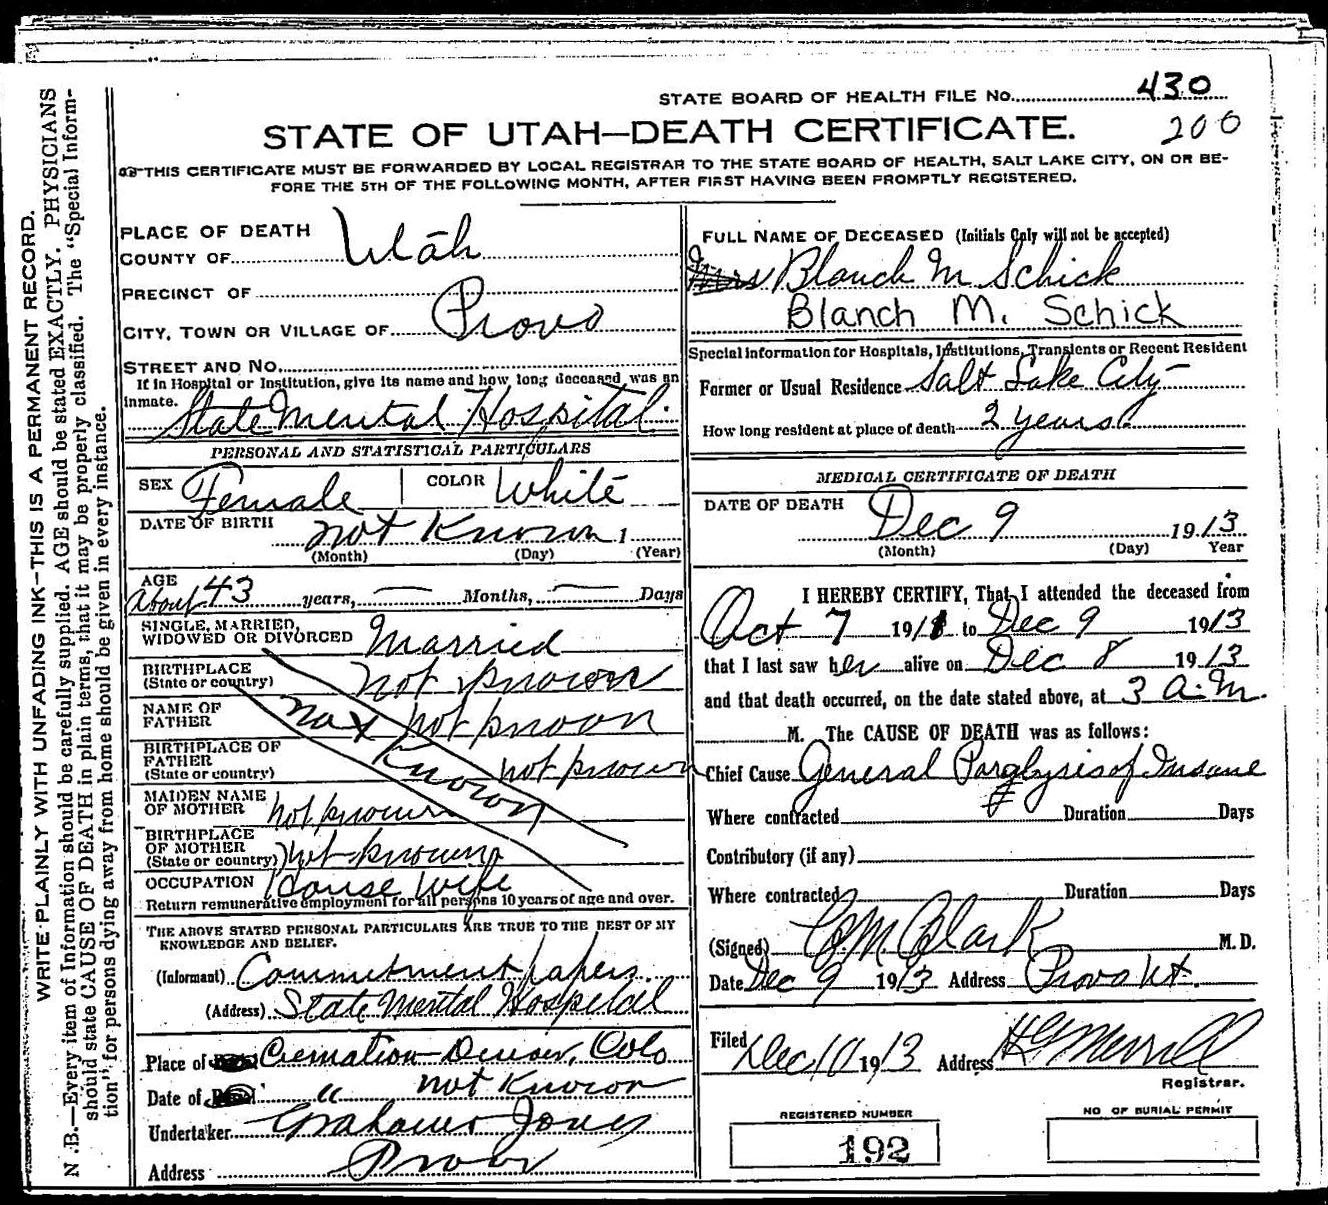 STATE BOARD OF HEALTH FILE No. 430
200
STATE OF UTAH—DEATH CERTIFICATE.
THIS CERTIFICATE MUST BE FORWARDED BY LOCAL REGISTRAR TO THE STATE BOARD OF HEALTH, SALT LAKE CITY, ON OR BE-
FORE THE 5TH OF THE FOLLOWING MONTH, AFTER FIRST HAVING BEEN PROMPTLY REGISTERED.
WRITE PLAINLY WITH UNFADING INK—THIS IS A PERMANENT RECORD.
N.B.—Every item of Information should be carefully supplied. AGE should be stated EXACTLY. PHYSICIANS
should state CAUSE OF DEATH in plain terms, that it may be properly classified. The "Special Inform-
tion" for persons dying away from home should be given in every instance.
PLACE OF DEATH
COUNTY OF Utah
PRECINCT OF
CITY, TOWN OR VILLAGE OF Provo
STREET AND No.
If in Hospital or Institution, give its name and how long deceased was an
inmate. State Mental Hospital.
PERSONAL AND STATISTICAL PARTICULARS
SEX Female COLOR White
DATE OF BIRTH not Known 1
(Month) (Day) (Year)
AGE
About 43 years, — Months, — Days
SINGLE, MARRIED,
WIDOWED OR DIVORCED Married
BIRTHPLACE
(State or country) not known
NAME OF
FATHER not not known
BIRTHPLACE OF
FATHER
(State or country) Known not known
MAIDEN NAME
OF MOTHER not known
BIRTHPLACE
OF MOTHER
(State or country) not known
OCCUPATION House wife
Return remunerative employment for all persons 10 years of age and over.
THE ABOVE STATED PERSONAL PARTICULARS ARE TRUE TO THE BEST OF MY
KNOWLEDGE AND BELIEF.
(Informant) Commitment papers
(Address) State Mental Hospital
Place of Cremation Denver, Colo
Date of " not Known
Undertaker Jones
Address Provo
FULL NAME OF DECEASED (Initials Only will not be accepted)
Mrs Blanch M Schick
Blanch M. Schick
Special information for Hospitals, Institutions, Transients or Recent Resident
Former or Usual Residence Salt Lake City
How long resident at place of death 2 years
MEDICAL CERTIFICATE OF DEATH
DATE OF DEATH Dec 9 1913
(Month) (Day) Year
I HEREBY CERTIFY, That I attended the deceased from
Oct 7 1911 to Dec 9 1913
that I last saw her alive on Dec 8 1913
and that death occurred, on the date stated above, at 3 a.m.
M. The CAUSE OF DEATH was as follows:
Chief Cause General Paralysis of Insane
Where contracted Duration Days
Contributory (if any)
Where contracted Duration Days
(Signed) Clark M.D.
Date Dec 9 1913 Address Provo Ut.
Filed Dec 10 1913 Address Merrill
Registrar.
REGISTERED NUMBER
192
NO OF BURIAL PERMIT